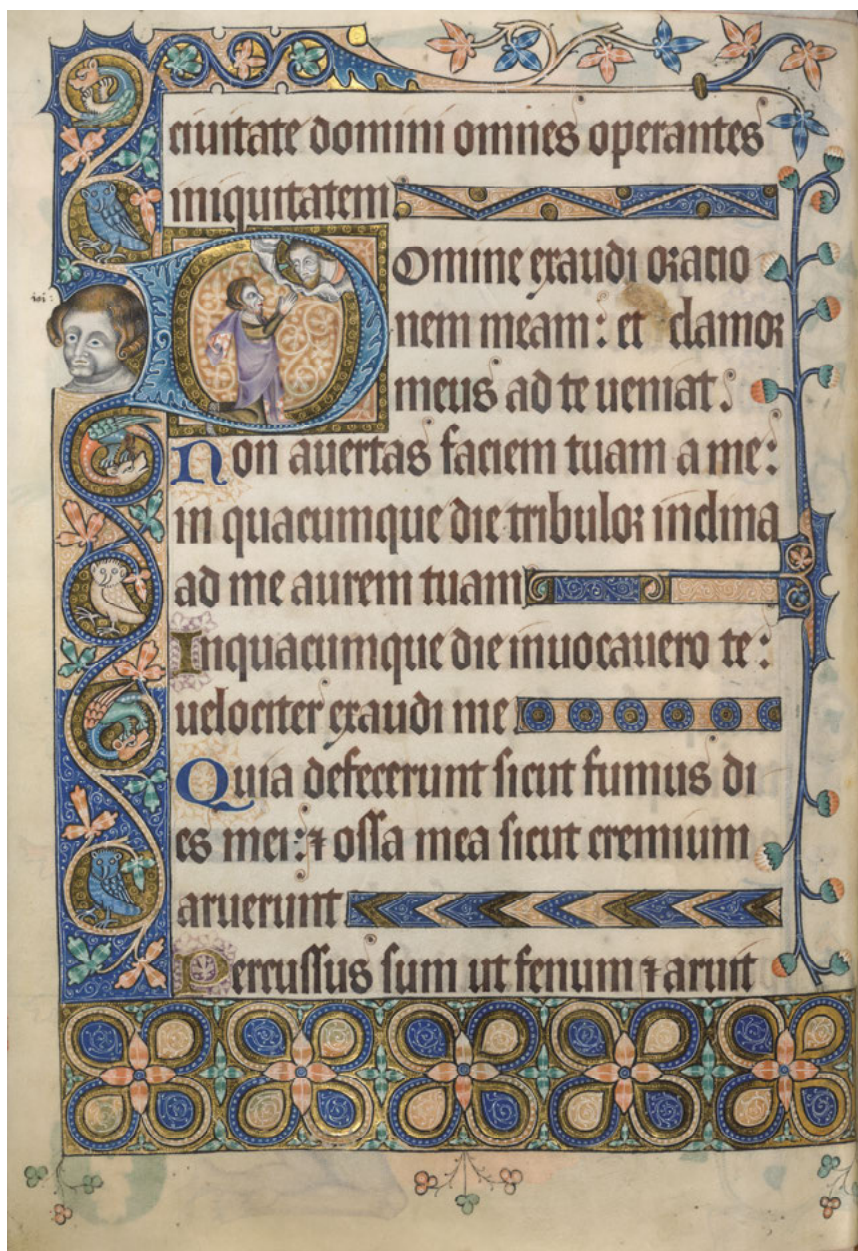 ciuitate domini omnes operantes
iniquitatem
Domine exaudi oracio
nem meam : et clamor
meus ad te ueniat .
Non auertas faciem tuam a me :
in quacumque die tribulor inclina
ad me aurem tuam
Inquacumque die inuocauero te :
uelociter exaudi me
Quia defecerunt sicut fumus di
es mei : ⁊ ossa mea sicut cremium
aruerunt
Percussus sum ut fenum ⁊ aruit